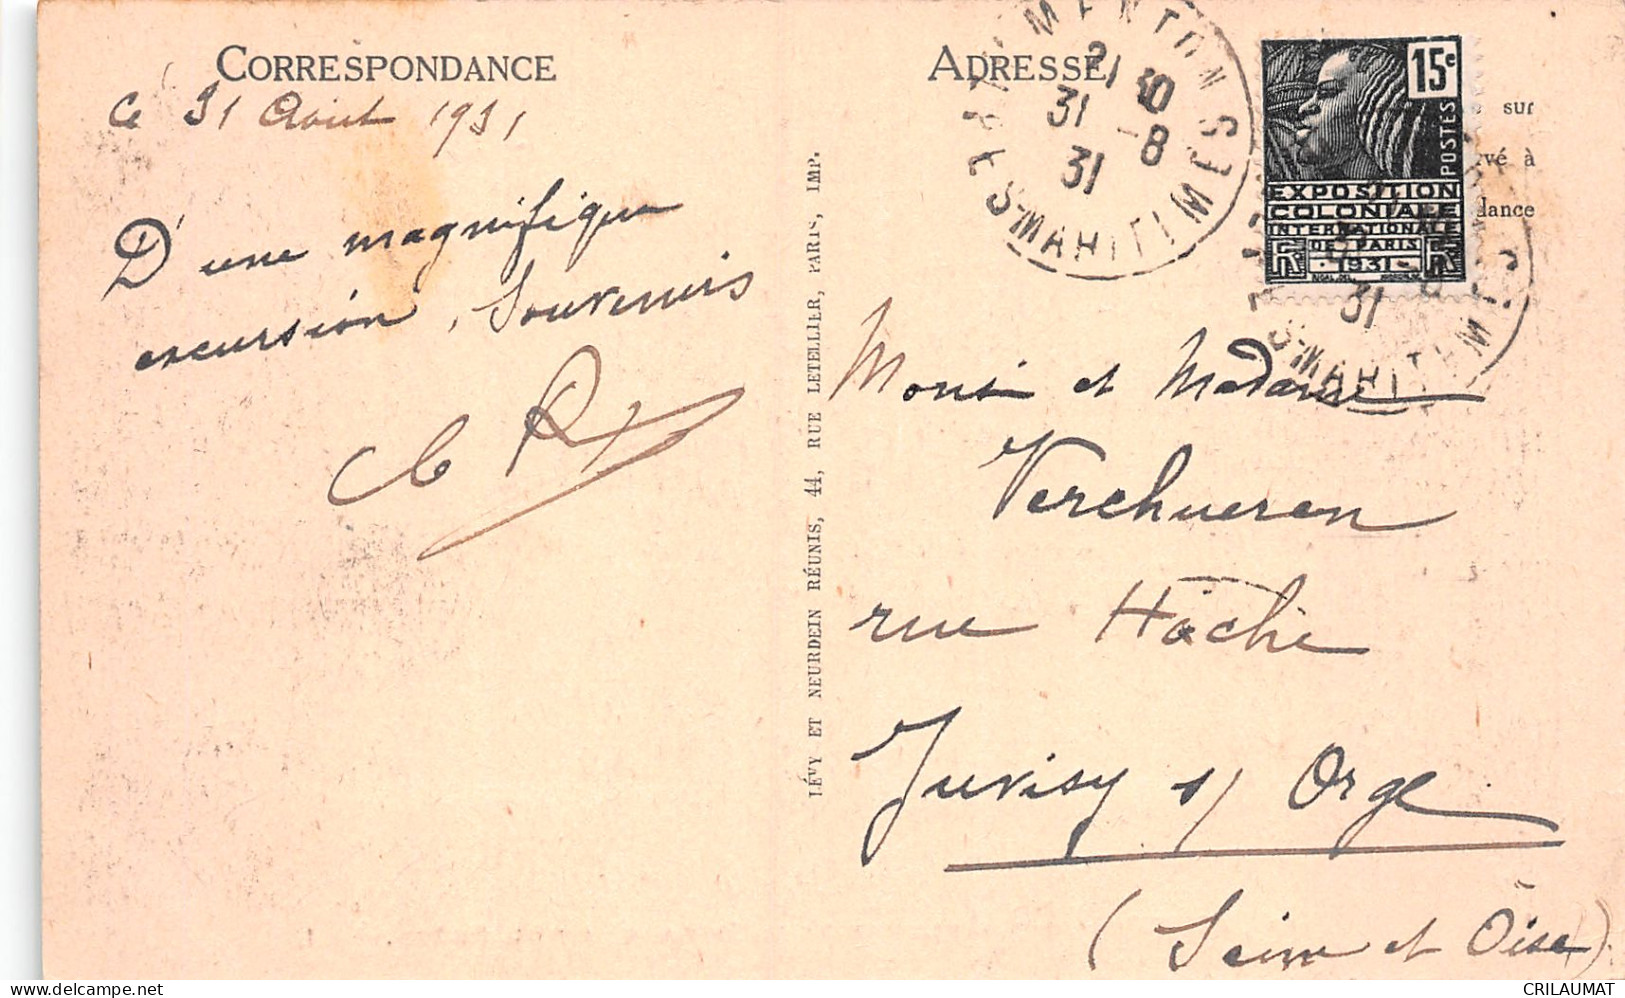 CORRESPONDANCE
Le 31 Aout 1931
D'une magnifique
excursion, Souvenirs
LÉVY ET NEURDEIN RÉUNIS, 44, RUE LETELLIER, PARIS, IMP.
ADRESSE
MENTON
21 10
31 -8
31
ALPES MARITIMES
15c
POSTES
EXPOSITION
COLONIALE
INTERNATIONALE
DE PARIS
1931
sur
vé à
dance
31
MARITIMES
Monsi et Madame
Verchueren
rue Hoche
Juvisy s/ Orge
(Seine et Oise)
CRILAUMAT